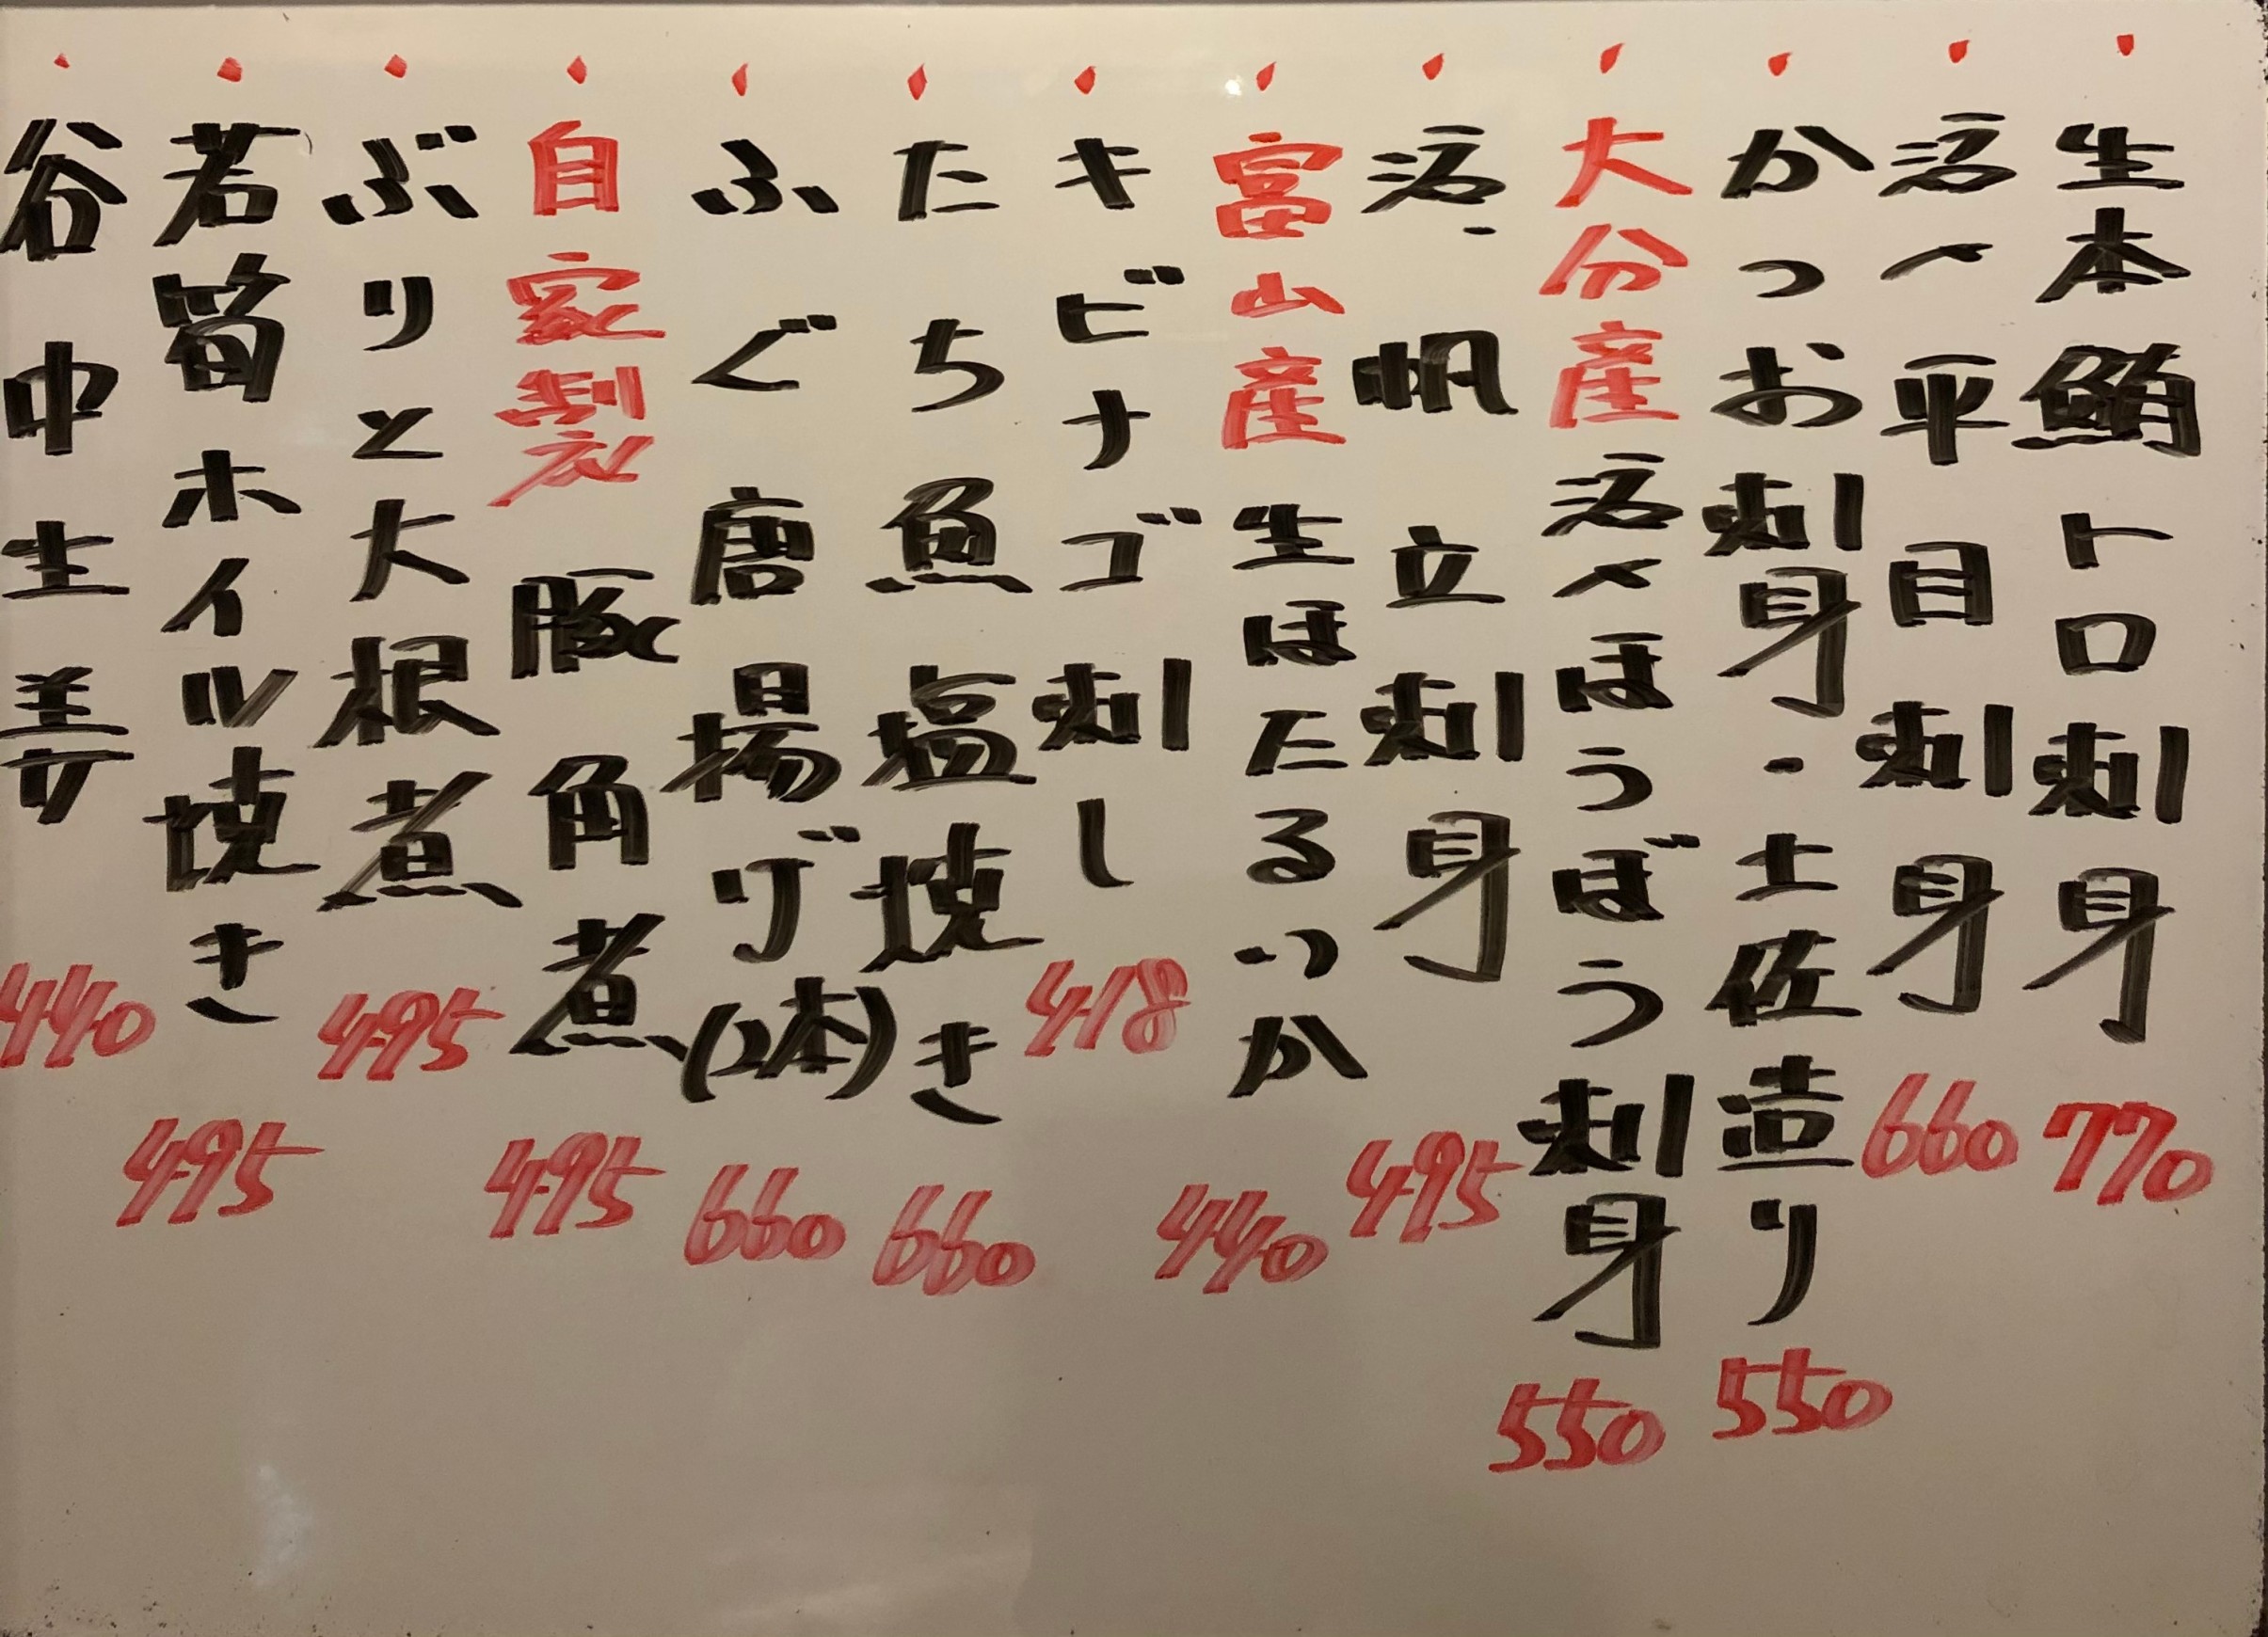 生本鮪トロ刺身 770
活〆平目刺身 660
かつお刺身・土佐造り 550
大分産活〆ほうぼう刺身 550
活帆立刺身 495
富山産生ほたるいか 440
キビナゴ刺し 418
たち魚塩焼き 660
ふぐ唐揚げ(2本) 660
自家製豚角煮 495
ぶりと大根煮 495
若筍ホイル焼き 495
谷中生姜 440